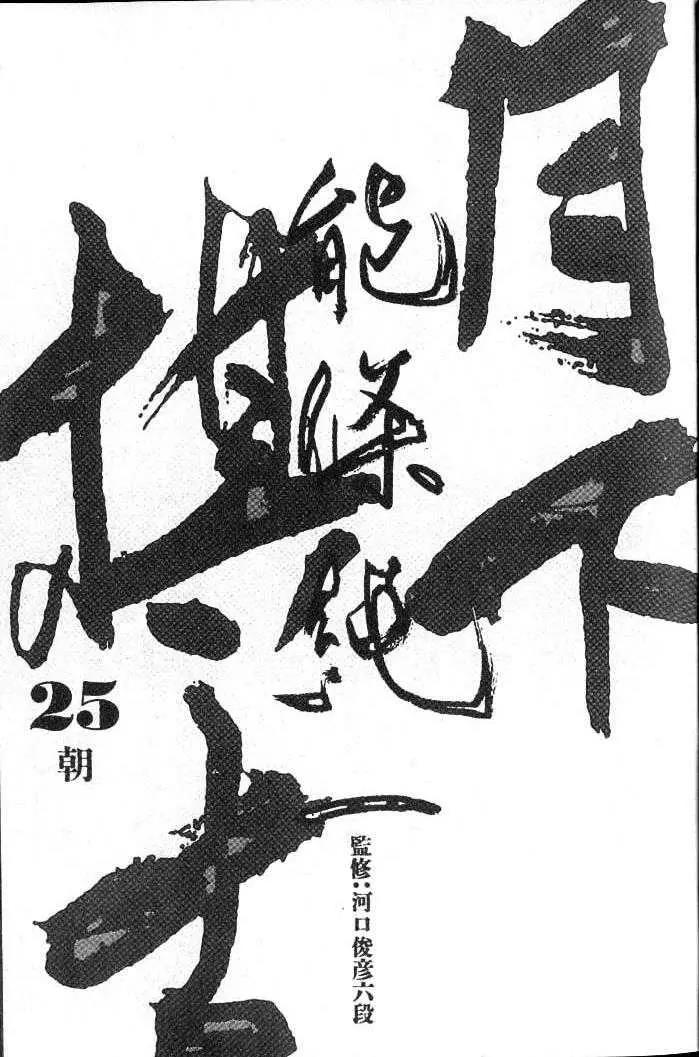 月下
棋士
能條純一
25
朝
監修:河口俊彦六段